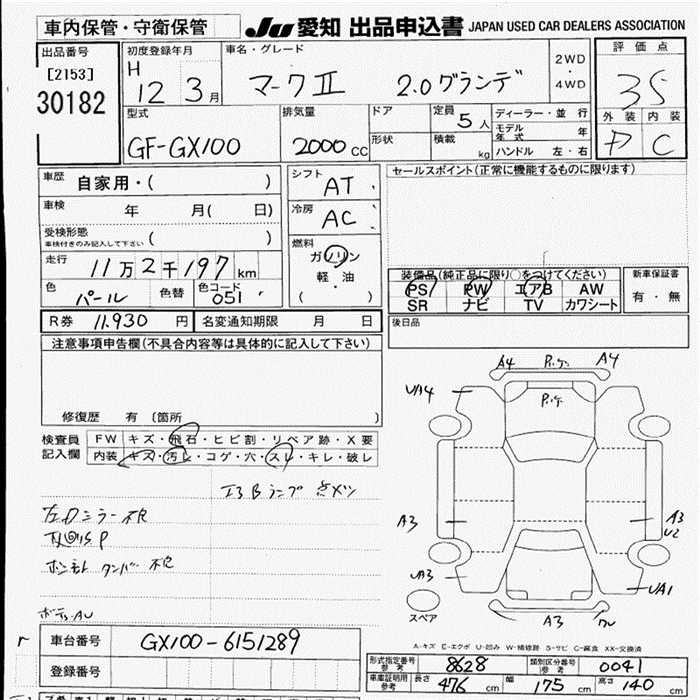 車内保管・守衛保管 JU 愛知 出品申込書 JAPAN USED CAR DEALERS ASSOCIATION
出品番号 初度登録年月 車名・グレード 2WD・4WD 評価点
[2153] H
30182 12 3月 マークⅡ 2.0グランデ 35
型式 排気量 ドア 定員 5人 ディーラー・並行 外装 内装
GF-GX100 2000CC 形状 積載 kg モデル年式 年 C
ハンドル 左・右
車歴 自家用・( ) シフト AT セールスポイント(正常に機能するものに限ります)
車検 年 月( 日) 冷房 AC
受検形態 ( )
車検付きのみ記入して下さい
燃料 ガソリン
走行 11万2千197km 軽・油 装備品(純正品に限り○をつけてください) 新車保証書
色 パール 色替 色コード 051 ( ) PS PW エアB AW 有・無
SR ナビ TV カワシート
R券 11.930 円 名変通知期限 月 日 後日品
注意事項申告欄(不具合内容等は具体的に記入して下さい)
A4 A4
UA4
修復歴 有 〔箇所 〕
検査員 FW キズ・飛石・ヒビ割・リペア跡・X要
記入欄 内装 キズ・汚レ・コゲ・穴・スレ・キレ・破レ
エアBランプ点メツ
左Dミラー不良
A3 A3
U2
不良
UA3 UA1
スペア
A3
車台番号 GX100-6151289
A-キズ E-エクボ U-凹み W-補修跡 S-サビ C-腐食 XX-交換済
登録番号
形式指定番号 参考 8628 類別区分番号 参考 0041
車庫証明用 参考 長さ 476 cm 幅 175 cm 高さ 140 cm